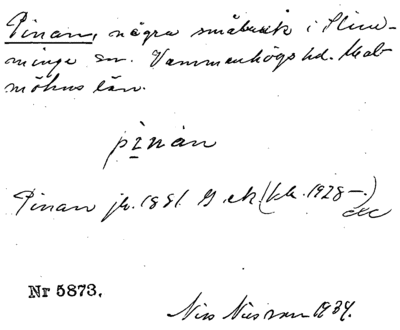 Pinan, några småbruk i Slim-
minge sn. Vemmenhögs hd. Mal-
möhus län.
pìnàn
Pinan jb. 1881 G. ek. (kb. 1928 –)
Nr 5873.
Nils Nilsson 1934.